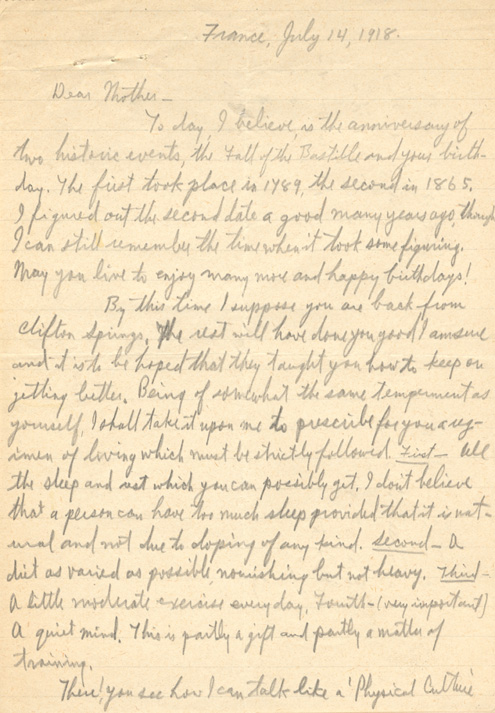 France, July 14, 1918.
Dear Mother -
To day, I believe, is the anniversary of
two historic events, the Fall of the Bastille and your birth-
day. The first took place in 1789, the second in 1865.
I figured out the second date a good many years ago, though
I can still remember the time when it took some figuring.
May you live to enjoy many more and happy birthdays!
By this time I suppose you are back from
Clifton Springs. The rest will have done you good I am sure
and it is to be hoped that they taught you how to keep on
getting better. Being of somewhat the same temperment as
yourself, I shall take it upon me to prescribe for you a reg-
imen of living which must be strictly followed. First - All
the sleep and rest which you can possibly get. I don't believe
that a person can have too much sleep provided that it is nat-
ural and not due to doping of any kind. Second - A
diet as varied as possible nourishing but not heavy. Third -
A little moderate exercise every day. Fourth - (very important)
A quiet mind. This is partly a gift and partly a matter of
training.
There! you see how I can talk like a 'Physical Culture'